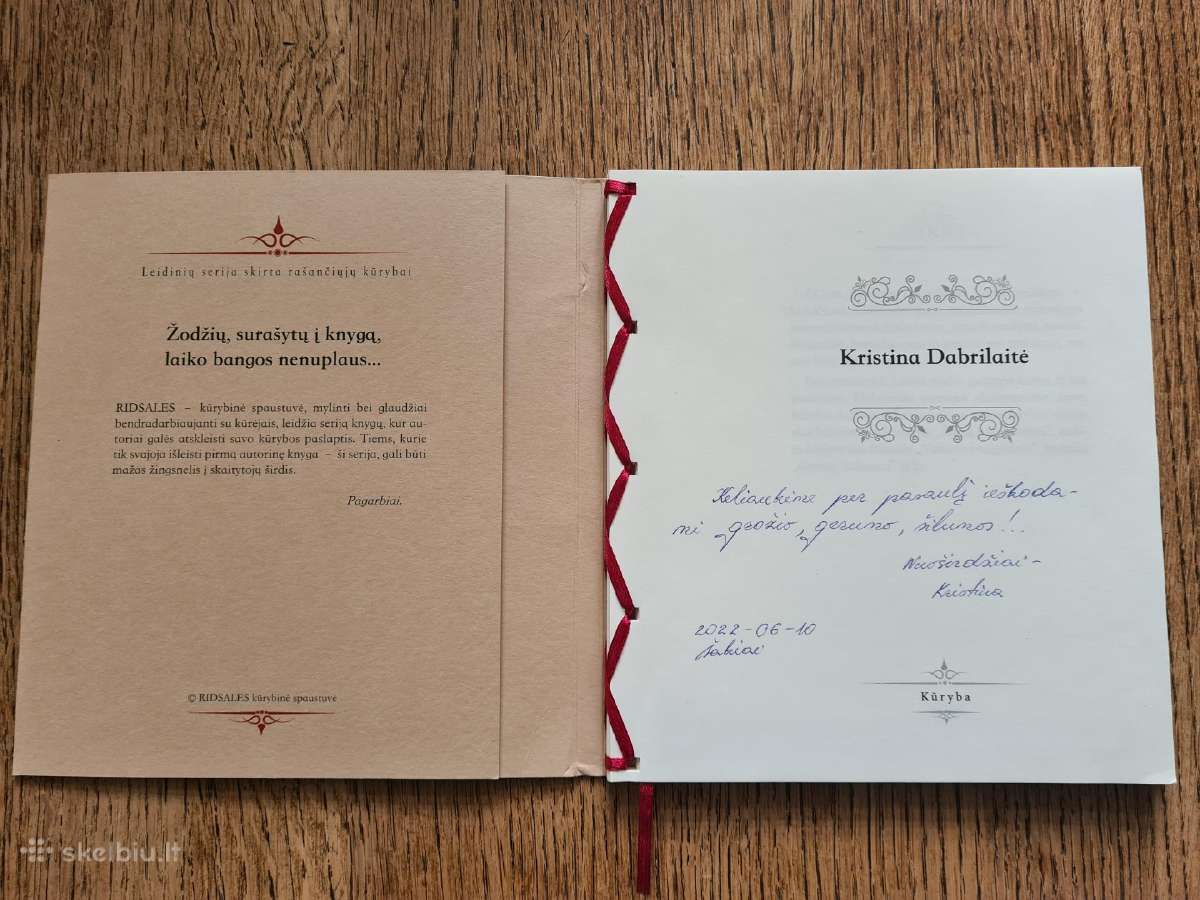 Leidinių serija skirta rašančiųjų kūrybai
Žodžių, surašytų į knygą,
laiko bangos nenuplaus...
RIDSALES – kūrybinė spaustuvė, mylinti bei glaudžiai
bendradarbiaujanti su kūrėjais, leidžia seriją knygų, kur au-
toriai galės atskleisti savo kūrybos paslaptis. Tiems, kurie
tik svajoja išleisti pirmą autorinę knyga – ši serija, gali būti
mažas žingsnelis į skaitytojų širdis.
Pagarbiai.
© RIDSALES kūrybinė spaustuvė
Kristina Dabrilaitė
Keliaukime per pasaulį ieškoda-
mi grožio, gerumo, šilumos!..
Nuoširdžiai –
Kristina
2022-06-10
Šakiai
Kūryba
skelbiu.lt